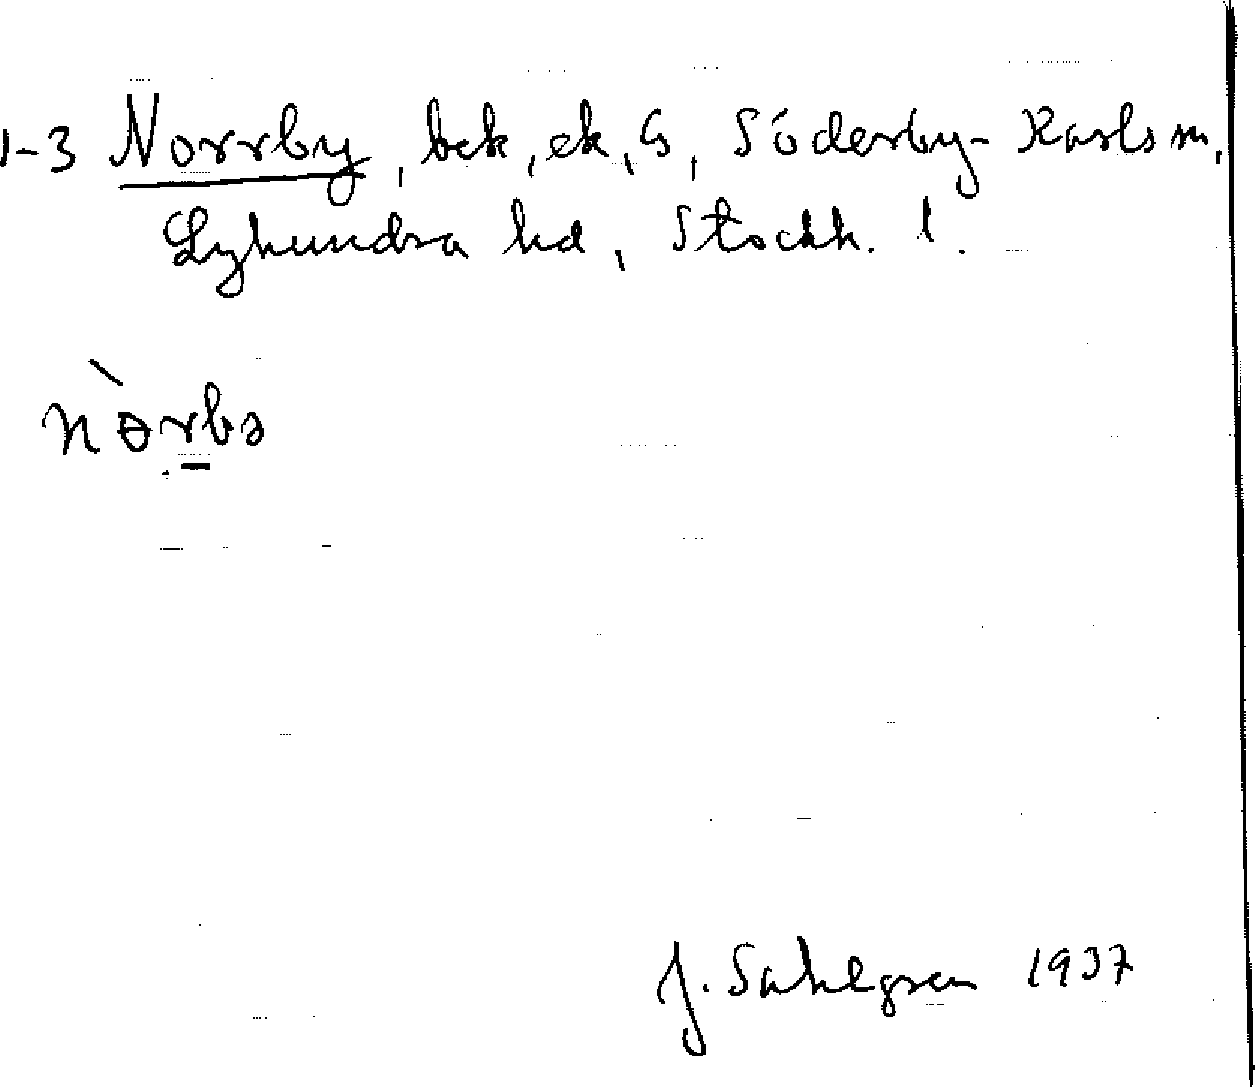 1-3 Norrby, bek, ek, G, Söderby-Karls sn,
Lyhundra hd, Stockh. l.
nòrbə
J. Sahlgren 1937